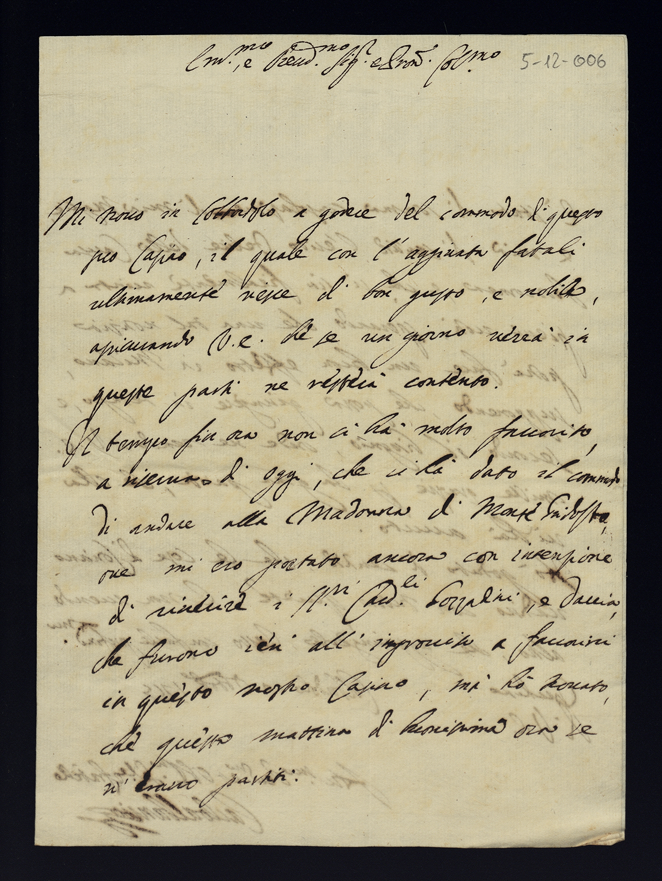 Em.mo, e Reud.mo Sig.r e Pron. Col.mo 5-12-006
Mi trouo in Cottordolo a godere del commodo di questo
mio Casino, il quale con l'aggiunta fattali
ultimamente riesce di bon gusto, e nobile,
assicurando V.E. che se un giorno uerrà in
queste parti ne resterà contento.
Il tempo fin ora non ci hà molto fauorito,
a riserua di oggi, che ci hà dato il commodo
di andare alla Madonna di Monte
oue mi ero portato ancora con intenzione
di riuerire i SS.ri Card.li Gozzadini, e d'Adda,
che furono ieri all'improuiso a fauorirci
in questo nostro Casino, mà hò trouato,
che questa mattina di buonissima ora se
n'erano partiti.